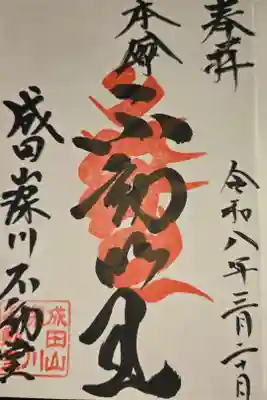 奉拝
令和八年三月二十日
本尊
不動明王
成田山深川不動堂
成田山